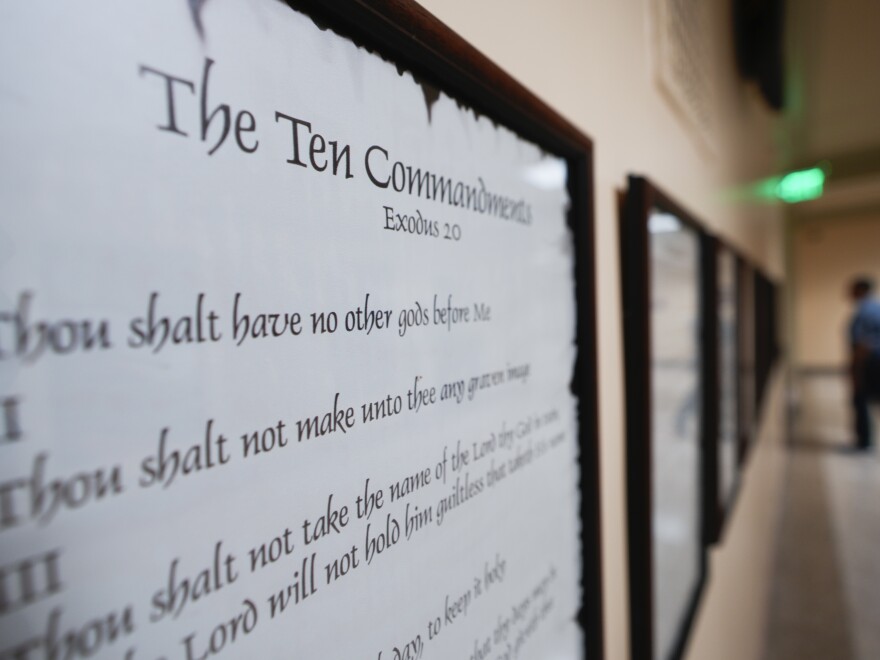 The Ten Commandments
Exodus 20
Thou shalt have no other gods before Me
II
Thou shalt not make unto thee any graven image
III
Thou shalt not take the name of the Lord thy God in vain
the Lord will not hold him guiltless that taketh His name
day, to keep it holy
that thy days may be